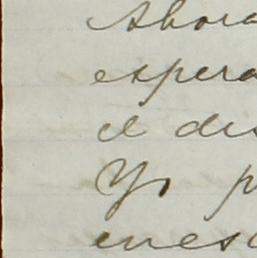 Ahora
espera
el dis
Yo p
cues